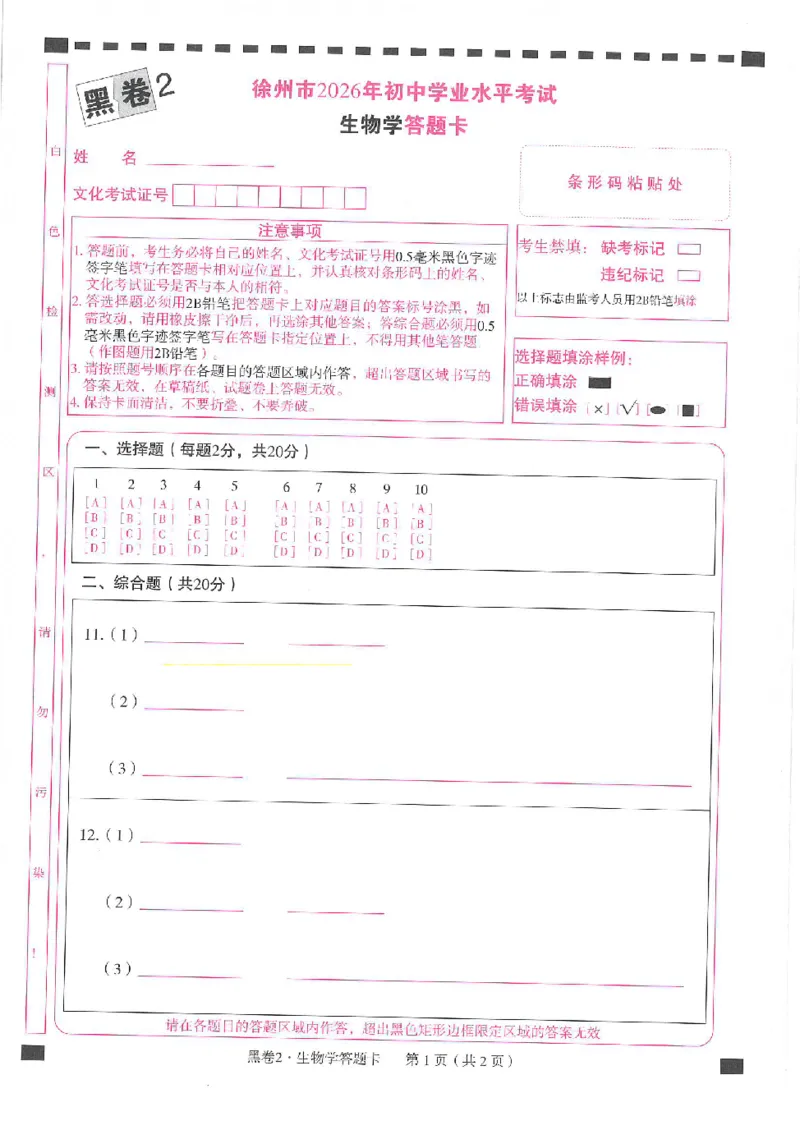 黑卷2
徐州市2026年初中学业水平考试
生物学答题卡
姓 名
文化考试证号
条形码粘贴处
注意事项
1. 答题前，考生务必将自己的姓名、文化考试证号用0.5毫米黑色字迹
签字笔填写在答题卡相对应位置上，并认真核对条形码上的姓名、
文化考试证号是否与本人的相符。
2. 答选择题必须用2B铅笔把答题卡上对应题目的答案标号涂黑，如
需改动，请用橡皮擦干净后，再选涂其他答案；答综合题必须用0.5
毫米黑色字迹签字笔写在答题卡指定位置上，不得用其他笔答题
（作图题用2B铅笔）。
3. 请按照题号顺序在各题目的答题区域内作答，超出答题区域书写的
答案无效，在草稿纸、试题卷上答题无效。
4. 保持卡面清洁，不要折叠、不要弄破。
考生禁填： 缺考标记
违纪标记
以上标志由监考人员用2B铅笔填涂
选择题填涂样例：
正确填涂
错误填涂 [×] [√] [●] [■]
白色检测区，请勿污染！
一、选择题（每题2分，共20分）
1 2 3 4 5 6 7 8 9 10
[A] [A] [A] [A] [A] [A] [A] [A] [A] [A]
[B] [B] [B] [B] [B] [B] [B] [B] [B] [B]
[C] [C] [C] [C] [C] [C] [C] [C] [C] [C]
[D] [D] [D] [D] [D] [D] [D] [D] [D] [D]
二、综合题（共20分）
11.（1）
（2）
（3）
12.（1）
（2）
（3）
请在各题目的答题区域内作答，超出黑色矩形边框限定区域的答案无效
黑卷2·生物学答题卡 第1页（共2页）